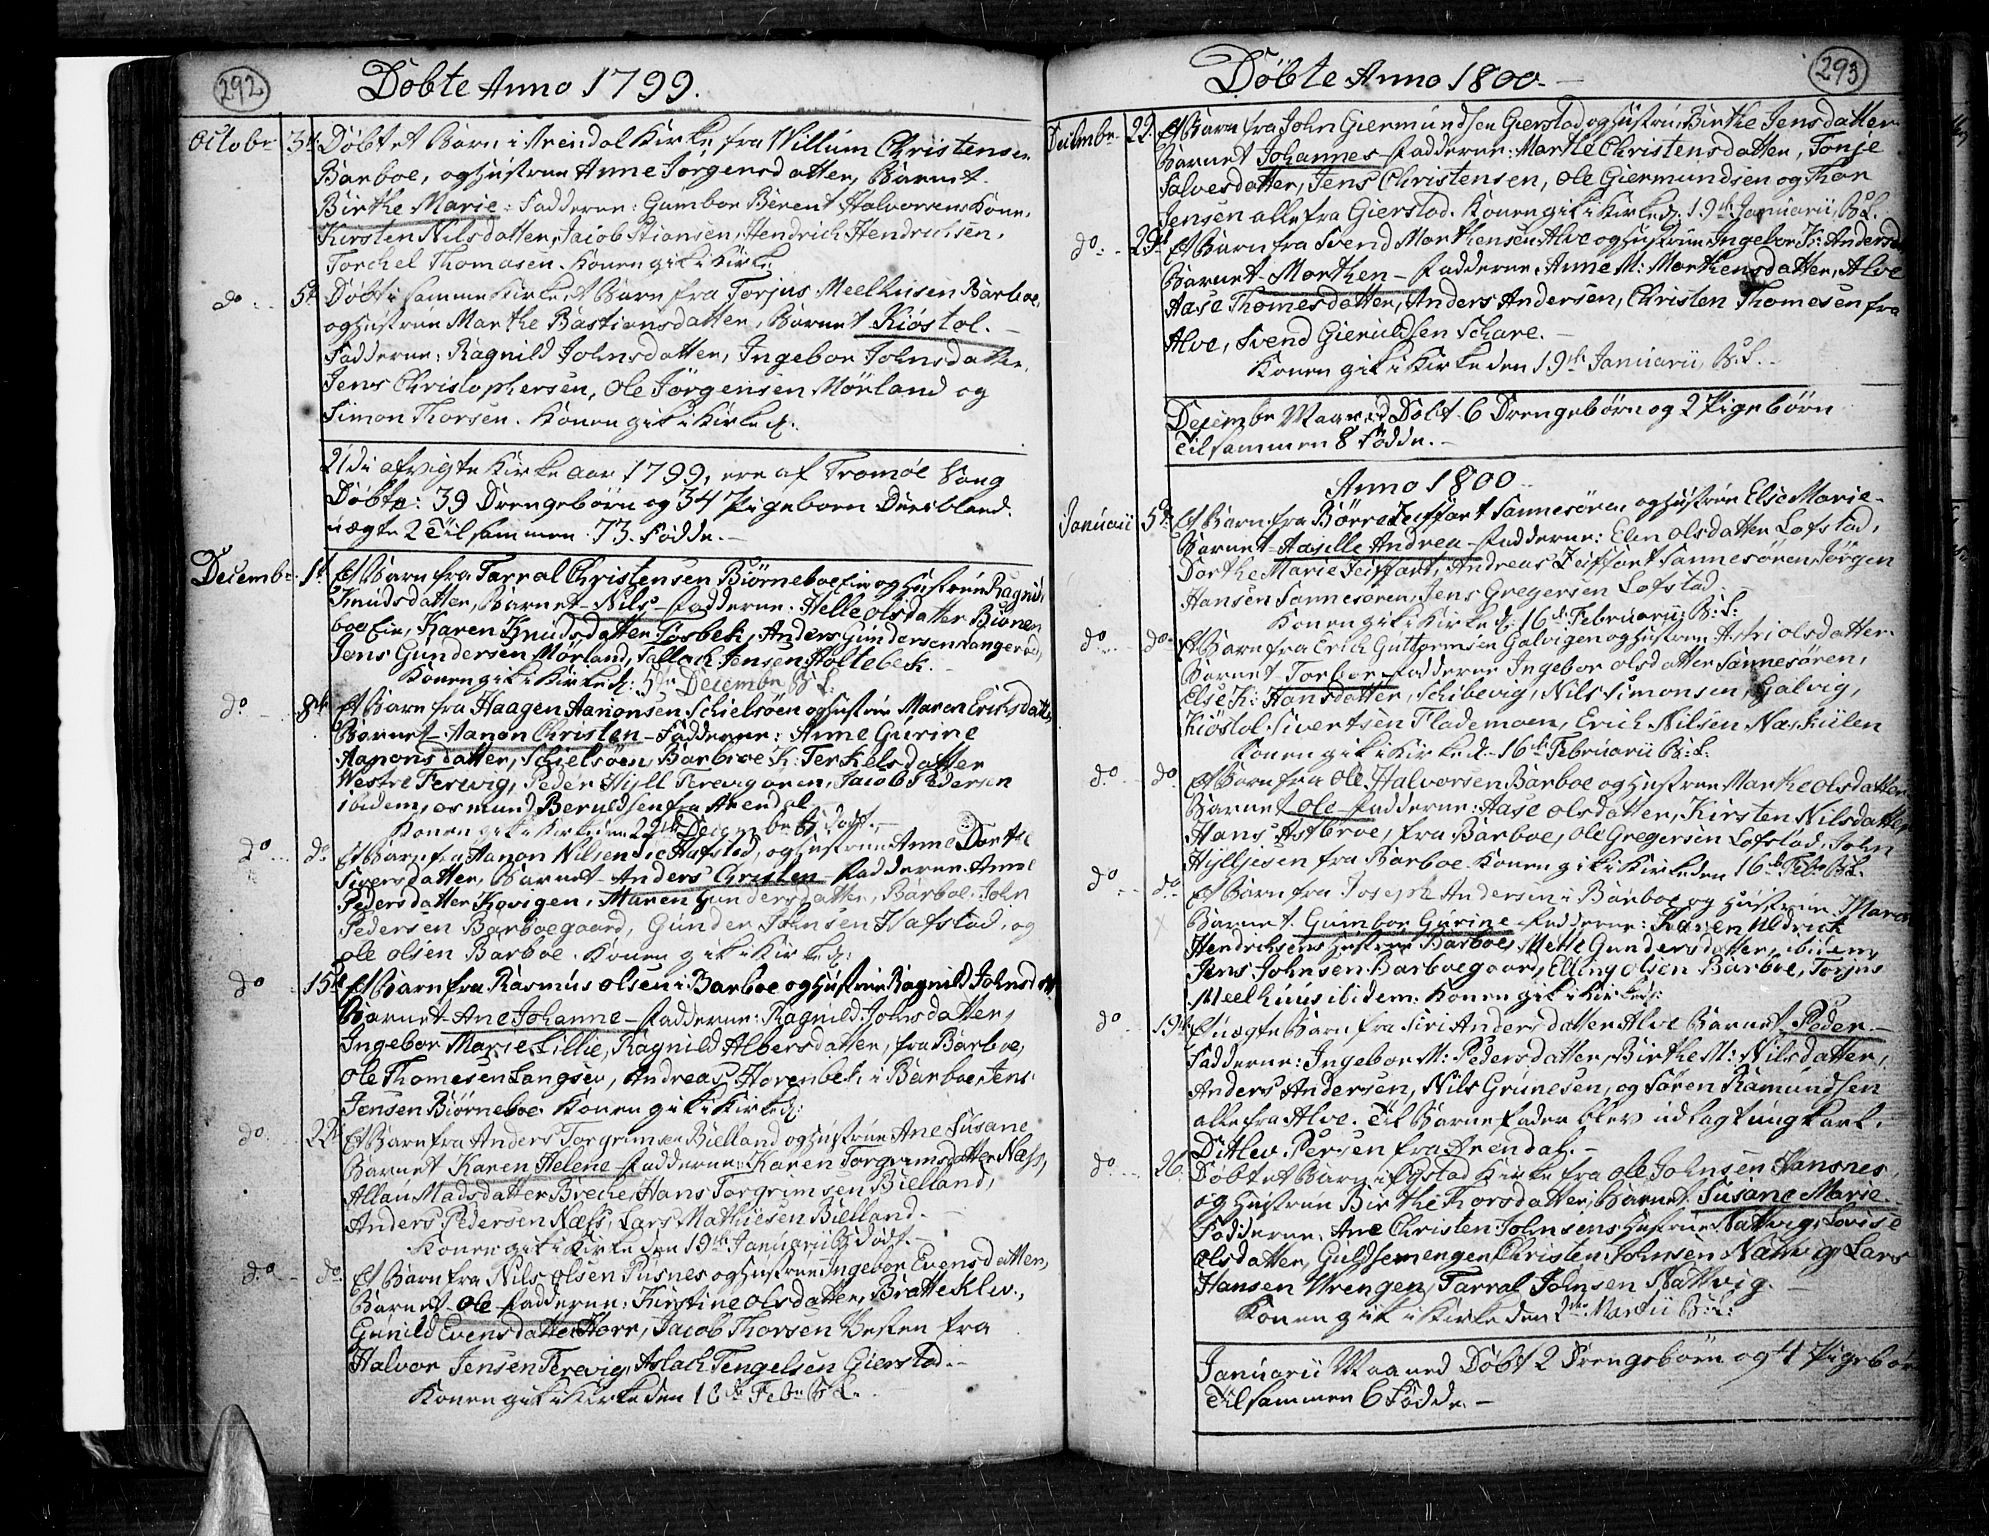 292
Döbte Anno 1799.
Octobr 3t Döbt et Barn i Arendal Kirke fra Willum Christensen
Barboe, og Hustrue Anne Jörgensdatter, Barnet
Birthe Marie. Fadderne: Gumbor Berent Halvorsens Kone,
Kirsten Nilsdatter, Jacob Stiansen, Hendrich Hendrichsen,
Torchel Thomasen. Konen gik i Kirke
do 5t Döbt i samme Kirke et Barn fra Torjus Meelhusen Barboe,
og Hustrue Marthe Bastiansdatter, Barnet Kiöstol. —
Fadderne: Ragnild Johnsdatter, Ingebor Johnsdatter,
Jens Christophersen, Ole Jörgensen Mörland og
Simon Thorsen. Konen gik i Kirke d:
Udi afvigte Kirke aar 1799, ere af Tromöe Sogn
Döbte: 39 Drengebörn og 34 Pigebörn Deribland
uægte 2 Tilsammen 73. Födde. —
Decembr 1t Et Barn fra Tarral Christensen Biörneboe Eie og Hustrue Ragnild
Knudsdatter, Barnet Nils Fadderne: Helle Olsdatter Biörne
boe Eie, Karen Knudsdatter Sosbek, Anders Gundersen Rangeröd,
Jens Gundersen Mörland, Sallach Jensen Holtebek.
Konen gik i Kirke d: 5te Decembr B: L:
do 8de Et Barn fra Haagen Aanonsen Schielsöen og Hustrue Maren Erichsdatter
Barnet Aanon Christen Fadderne: Anne Gurine
Aanonsdatter, Schielsöen, Barbroe K: Terkelsdatter
Westre Fervig, Peder Hyll Ferevigoren, Jacob Pedersen
ibidem, Osmund Beruldsen fra Arendal
Konen gik i Kirke den 22de Decembr B: Död. —
do do Et Barn fra Aanon Nilsen Hafstad, og Hustrue Anne Dorthe
Siversdatter, Barnet Anders Christen Fadderne: Anne
Pedersdatter Kovigen, Maren Gundersdatter, Barboe, John
Pedersen Barboegaard, Gunder Johnsen Hafstad, og
Ole Olsen Barboe. Konen gik i Kirke d:
do 15de Et Barn fra Rasmus Olsen i Barboe og Hustrue Ragnild Johnsdatter
Barnet Ane Johanne Fadderne: Ragnild Johnsdatter,
Ingebor Marie Lillie, Ragnild Albersdatter, fra Barboe,
Ole Thomesen Langsev, Andreas Horenbek i Barboe, Jens
Jensen Biörneboe. Konen gik i Kirke d:
do 22de Et Barn fra Anders Torgrimsen Bielland og Hustrue Ane Susane
Barnet Karen Helene Fadderne: Karen Torgrimsdatter Næss,
Allau Madsdatter Breche, Hans Torgrimsen Bielland,
Anders Pedersen Næss, Lars Mathiesen Bielland. —
Konen gik i Kirke den 19de Januarii B: Död. —
do do Et Barn fra Nils Olsen Pusnes og Hustrue Ingebor Evensdatter,
Barnet Ole Fadderne: Kirstine Olsdatter, Bratteklev,
Gunild Evensdatter Horr, Jacob Thorsen Besten fra
Halvor Jensen Ferevig, Aslach Tengelsen Gierstad. —
Konen gik i Kirke den 16de Febr B: L.
293
Döbte Anno 1800. —
Decembr 22. Et Barn fra John Giermundsen Gierstad og Hustrue, Birthe Jensdatter
Barnet Johannes Fadderne: Marthe Christensdatter, Tonje
Salvesdatter, Jens Christensen, Ole Giermundsen og Thor
Jensen alle fra Gierstad. Konen gik i Kirke d: 19de Januarii, B: L.
do 29de Et Barn fra Svend Morthensen Alve og Hustrue Ingebor K: Andersd:
Barnet Morthen Fadderne: Anne M: Morthensdatter, Alve
Aase Thomesdatter, Anders Andersen, Christen Thomesen fra
Alve, Svend Gieruldsen Schare. —
Konen gik i Kirke den 19de Januarii, B: L. —
Decembr Maaned Döbt 6 Drengebörn og 2 Pigebörn
Tilsammen 8 Födde. —
Anno 1800
Januarii 5te Et Barn fra Börre Seiffart Sannesören og Hustrue Else Marie
Barnet Aasille Andrea Fadderne: Elen Olsdatter Lofstad,
Dorthe Marie Seiffart, Andreas Seiffart Sannesören, Jörgen
Hansen Sannesören, Jens Gregersen Lofstad
Konen gik i Kirke d: 16de Februarii B: L:
do do Et Barn fra Erich Guttormsen Galvigen og Hustrue Astri Olsdatter
Barnet Torbor Fadderne Ingebor Olsdatter Sannesören,
Else K: Hansdatter, Schibevig, Nils Simonsen, Galvig,
Kiöstol Sivertsen Flademoen, Erich Nilsen Næskiilen
Konen gik i Kirke d. 16de Februarii B: L.
do do Et Barn fra Ole Halvorsen Barboe og Hustrue Marthe Olsdatter
Barnet Ole Fadderne: Aase Olsdatter, Kirsten Nilsdatter
Hans Astbroe, fra Barboe, Ole Gregersen Lofstad, John
Hylljesen fra Barboe Konen gik i Kirke den 16de Febr B: L.
do do Et Barn fra Joseph Andersen i Barboe og Hustrue Maren
Barnet Gumbor Gurine Fadderne: Karen Uldrick
Hendrichsens Hustrue Barboe, Mette Gundersdatter, ibidem,
Jens Johnsen Barboegaard, Elling Olsen Barboe, Torjus
Meelhuus ibidem. Konen gik i Kirke d:
do 19de Et uægte Barn fra Siri Andersdatter Alve Barnet Peder —
Fadderne: Ingebor M: Pedersdatter, Birthe M: Nilsdatter,
Anders Andersen, Nils Grunesen, og Sören Ramundsen
alle fra Alve. Til Barnefader blev udlagt ungkarl,
Ditlev Persen fra Arendal. —
do 26. Döbt et Barn i Öjestad Kirke fra Ole Johnsen Hansnes,
og Hustrue Birthe Thorsdatter, Barnet Susane Marie
Fadderne: Ane Christen Johnsens Hustrue Nattvig, Lovise
Olsdatter, Guldsemengen Christen Johnsen Nattvig Lars
Hansen Vrengen, Tarral Johnsen Nattvig. —
Konen gik i Kirke den 2den Martii B: L:
Januarii Maaned Döbt 2 Drengebörn og 4 Pigebörn
Tilsammen 6 Födde. —